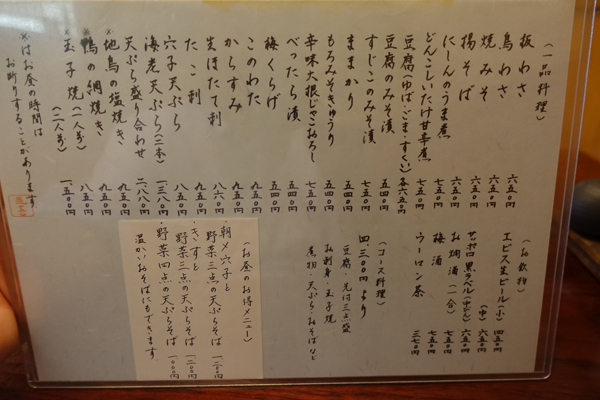 (一品料理)
板わさ 六五〇円
鳥わさ 六五〇円
焼みそ 六五〇円
揚そば 六五〇円
にしんのうま煮 七五〇円
どんこしいたけ甘辛煮 七五〇円
豆腐(ゆば・ごま・すくい) 各六五〇円
豆腐のみそ漬 五四〇円
すじこのみそ漬 七五〇円
ままかり 五四〇円
もろみそきゅうり 五四〇円
辛味大根じゃこおろし 七五〇円
べったら漬 五四〇円
梅くらげ 五四〇円
このわた 九五〇円
からすみ 九五〇円
生ほたて刺 八六〇円
たこ刺 九五〇円
穴子天ぷら 八五〇円
海老天ぷら(二本) 一、三八〇円
天ぷら盛り合わせ 二、八八〇円
※地鳥の塩焼き 九五〇円
※鴨の網焼き 八五〇円
※玉子焼(一人前) 八五〇円
(二人前) 一、五〇〇円
※はお昼の時間は
お断りすることがあります
(お飲物)
エビス生ビール(小) 四五〇円
(中) 六五〇円
サッポロ黒ラベル(中びん) 六五〇円
お燗酒(一合) 七五〇円
梅酒 七五〇円
ウーロン茶 三七〇円
(コース料理)
四、三〇〇円より
豆腐・先付三点盛
お刺身・玉子焼
煮物・天ぷら・おそばなど
(お昼のお得メニュー)
・朝〆穴子と
野菜三点の天ぷらそば 一、二〇〇円
・きすと
野菜三点の天ぷらそば 一、二〇〇円
・野菜四点の天ぷらそば 一、〇〇〇円
温かいおそばにもできます